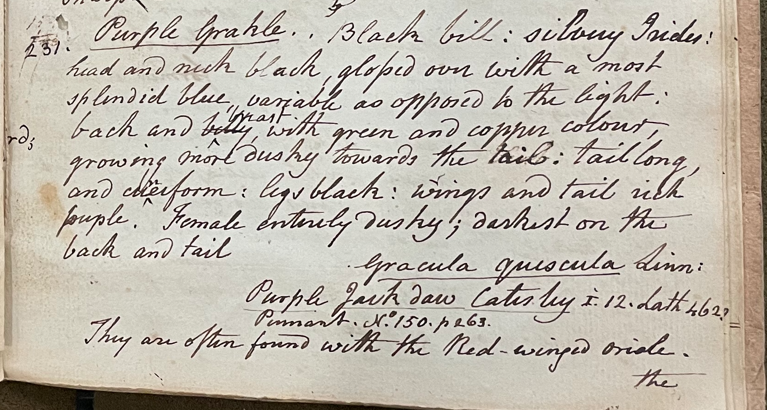 231. Purple Grakle. . Black bill: silvery Irides:
head and neck black, glossed over with a most
splendid blue, variable as opposed to the light:
back and belly breast, with green and copper colour,
growing more dusky towards the tail: tail long,
rds
and cuneiform: legs black: wings and tail rich
puple. Female entirely dusky; darkest on the
back and tail
Gracula quiscula Linn:
Purple Jack daw Catesby I. 12. Lath 462?
Pennant. No. 150. p263.
They are often found with the Red-winged oriole.
the